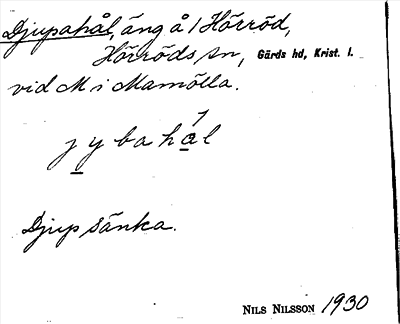 Djupahål, äng å 1 Hörröd,
Hörröds sn, Gärds hd, Krist. l.
vid M i Mamölla.
jybahál
Djup sänka.
NILS NILSSON 1930